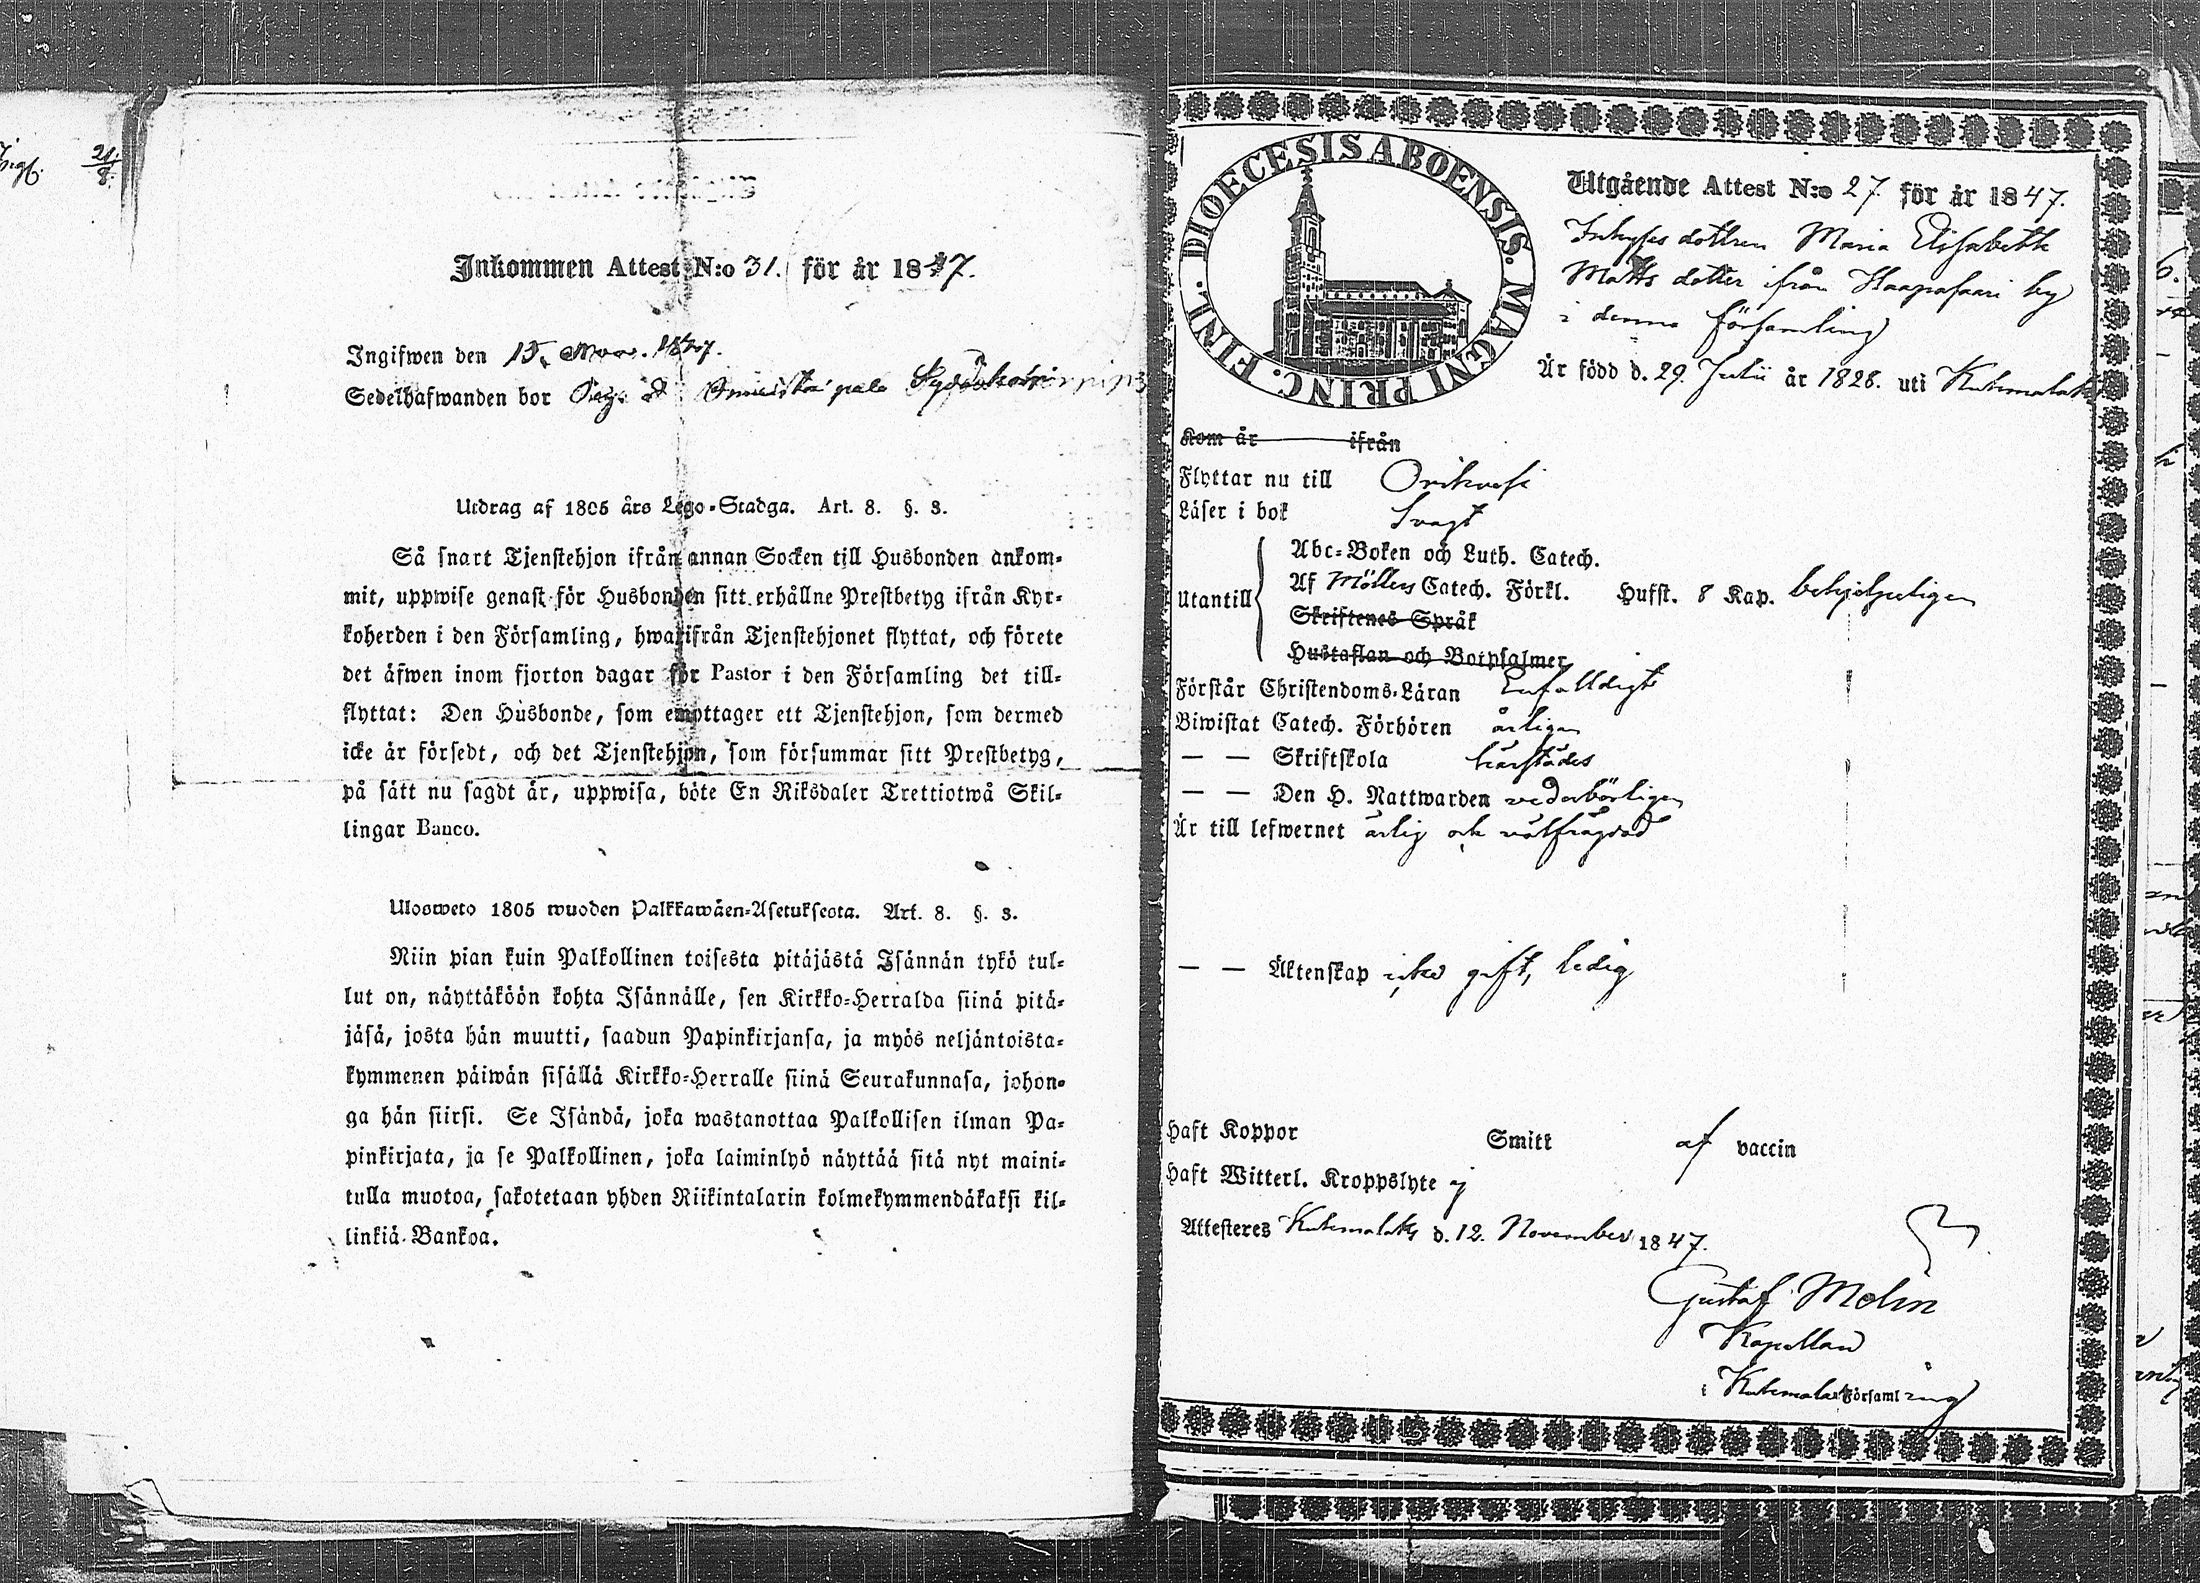 Inkommen Attest N:o 31. för år 1847.
Ingifwen den 15. Nov. 1847.
Sedelhafwanden bor
Utdrag af 1805 års Lego-Stadga. Art. 8. §. 3.
Så snart Tjenstehjon ifrån annan Socken till Husbonden ankom-
mit, uppwise genast för Husbonden sitt erhållne Prestbetyg ifrån Kyr-
koherden i den Församling, hwarifrån Tjenstehjonet flyttat, och förete
det äfwen inom fjorton dagar för Pastor i den Församling det till-
flyttat: Den Husbonde, som emottager ett Tjenstehjon, som dermed
icke är försedt, och det Tjenstehjon, som försummar sitt Prestbetyg,
på sätt nu sagdt är, uppwisa, böte En Riksdaler Trettiotwå Skil-
lingar Banco.
Ulosweto 1805 wuoden Palkkawäen-Asetuksesta. Art. 8. §. 3.
Niin pian kuin Palkollinen toisesta pitäjästä Isännän tykö tul-
lut on, näyttäköön kohta Isännälle, sen Kirkko-Herralda siinä pitä-
jäsä, josta hän muutti, saadun Papinkirjansa, ja myös neljäntoista-
kymmenen päiwän sisällä Kirkko-Herralle siinä Seurakunnasa, johon-
ga hän siirsi. Se Isändä, joka wastanottaa Palkollisen ilman Pa-
pinkirjata, ja se Palkollinen, joka laiminlyö näyttää sitä nyt maini-
tulla muotoa, sakotetaan yhden Riikintalarin kolmekymmendäkaksi kil-
linkiä Bankoa.
DIOECESIS ABOENSIS. MAGNI PRINC. FINL.
Utgående Attest N:o 27 för år 1847.
Inhyses dottren Maria Elisabeth
Matts dotter ifrån Haapasaari by
i denna församling
Är född d. 29. Julii år 1828. uti Kuhmalaks
Kom år ifrån
Flyttar nu till Orihvesi
Läser i bok Svagt
Utantill
Abc-Boken och Luth. Catech.
Af Möllers Catech. Förkl. Husst. 8 Kap. behjelpeligen
Skriftenes Språk
Hustaflan och Botpsalmer
Förstår Christendoms-Läran Enfalldigt
Biwistat Catech. Förhören årligen
— — Skriftskola härstädes
— — Den H. Nattwarden vederbörligen
Är till lefwernet ärlig och välfrägdad
— — Äktenskap icke gift, ledig
Haft Koppor Smitt af vaccin
Haft Witterl. Kroppslyte ej
Attesteres Kuhmalaks d. 12. November 1847.
Gustaf Molin
Kapellan
i Kuhmalaks Församling